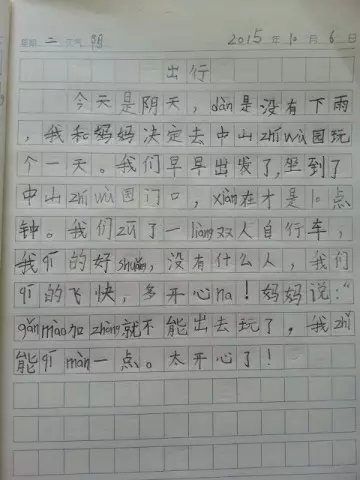 星期 二 天气 阴 2015 年 10 月 6 日
出行
今天是阴天，dàn是没有下雨
，我和妈妈决定去中山zhí wù园玩
个一天。我们早早出发了，坐到了
中山zhí wù园门口，xiàn在才是10点
钟。我们zū了一liàng双人自行车，
我qí的好shuǎng，没有什么人，我们
qí的飞快，多开心na！妈妈说：“
gǎn mào加zhòng就不能出去玩了，我zhǐ
能qí màn一点。太开心了！